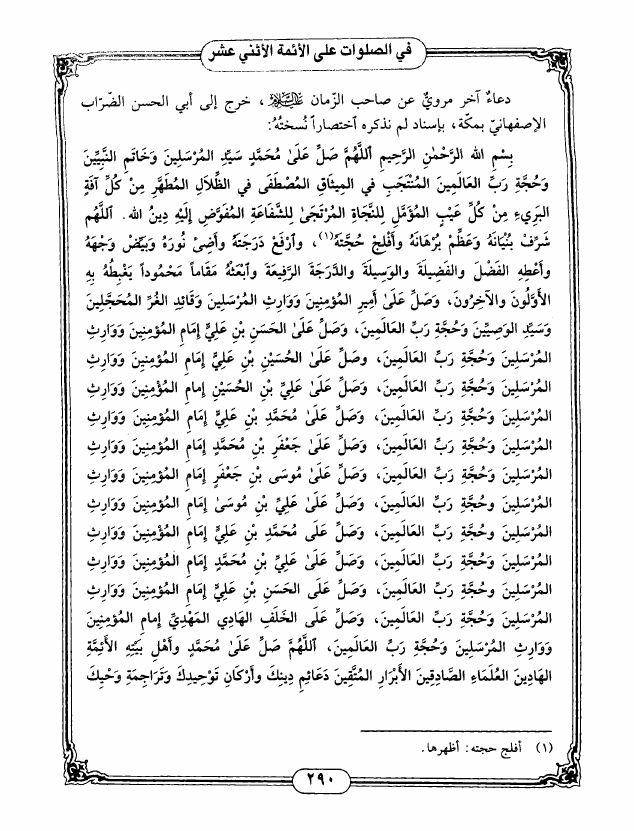 في الصلوات على الأئمة الأثني عشر
دعاءٌ آخر مرويٌ عن صاحب الزّمان عليه السلام، خرج إلى أبي الحسن الضرّاب
الإصفهانيّ بمكّة، بإسناد لم نذكره اختصاراً نُسختهُ:
بِسْمِ الله الرَّحْمٰنِ الرَّحِيمِ اَللّٰهُمَّ صَلِّ عَلَىٰ مُحَمَّدٍ سَيِّدِ المُرْسَلِينَ وَخَاتَمِ النَّبِيِّينَ
وَحُجَّةِ رَبِّ العَالَمِينَ المُنْتَجَبِ في المِيثاقِ المُصْطَفَى في الظِّلَالِ المُطَهَّرِ مِنْ كُلِّ آفَةٍ
البَرِيءِ مِنْ كُلِّ عَيْبٍ المُؤَمَّلِ لِلنَّجَاةِ المُرْتَجَىٰ لِلشَّفَاعَةِ المُفَوَّضِ إِلَيْهِ دِينُ الله. اَللّٰهُمَّ
شَرِّفْ بُنْيَانَهُ وَعَظِّمْ بُرْهَانَهُ وَأَفْلِجْ حُجَّتَهُ(١)، وَارْفَعْ دَرَجَتَهُ وأَضِئْ نُورَهُ وَبَيِّضْ وَجْهَهُ
وأَعْطِهِ الفَضْلَ والفَضِيلَةَ والوَسِيلَةَ والدَّرَجَةَ الرَّفِيعَةَ وَابْعَثْهُ مَقَاماً مَحْمُوداً يَغْبِطُهُ بِهِ
الأَوَّلُونَ والآخِرُونَ، وَصَلِّ عَلَىٰ أَمِيرِ المُؤْمِنِينَ وَوَارِثِ المُرْسَلِينَ وَقَائِدِ الغُرِّ المُحَجَّلِينَ
وَسَيِّدِ الوَصِيِّينَ وَحُجَّةِ رَبِّ العَالَمِينَ، وَصَلِّ عَلَىٰ الحَسَنِ بْنِ عَلِيٍّ إِمَامِ المُؤْمِنِينَ وَوَارِثِ
المُرْسَلِينَ وَحُجَّةِ رَبِّ العَالَمِينَ، وَصَلِّ عَلَىٰ الحُسَيْنِ بْنِ عَلِيٍّ إِمَامِ المُؤْمِنِينَ وَوَارِثِ
المُرْسَلِينَ وَحُجَّةِ رَبِّ العَالَمِينَ، وَصَلِّ عَلَىٰ عَلِيِّ بْنِ الحُسَيْنِ إِمامِ المُؤْمِنِينَ وَوَارِثِ
المُرْسَلِينَ وَحُجَّةِ رَبِّ العَالَمِينَ، وَصَلِّ عَلَىٰ مُحَمَّدِ بْنِ عَلِيٍّ إِمَامِ المُؤْمِنِينَ وَوَارِثِ
المُرْسَلِينَ وَحُجَّةِ رَبِّ العَالَمِينَ، وَصَلِّ عَلَىٰ جَعْفَرِ بْنِ مُحَمَّدٍ إِمَامِ المُؤْمِنِينَ وَوَارِثِ
المُرْسَلِينَ وَحُجَّةِ رَبِّ العَالَمِينَ، وَصَلِّ عَلَىٰ مُوسَى بْنِ جَعْفَرٍ إِمَامِ المُؤْمِنِينَ وَوَارِثِ
المُرْسَلِينَ وحُجَّةِ رَبِّ العَالَمِينَ، وَصَلِّ عَلَىٰ عَلِيِّ بْنِ مُوسَىٰ إِمَامِ المُؤْمِنِينَ وَوَارِثِ
المُرْسَلِينَ وحُجَّةِ رَبِّ العَالَمِينَ، وَصَلِّ عَلَىٰ مُحَمَّدِ بْنِ عَلِيٍّ إِمَامِ المُؤْمِنِينَ وَوَارِثِ
المُرْسَلِينَ وَحُجَّةِ رَبِّ العَالَمِينَ، وَصَلِّ عَلَىٰ عَلِيِّ بْنِ مُحَمَّدٍ إِمَامِ المُؤْمِنِينَ وَوَارِثِ
المُرْسَلِينَ وحُجَّةِ رَبِّ العَالَمِينَ، وَصَلِّ عَلَىٰ الحَسَنِ بْنِ عَلِيٍّ إِمَامِ المُؤْمِنِينَ وَوَارِثِ
المُرْسَلِينَ وَحُجَّةِ رَبِّ العَالَمِينَ، وَصَلِّ عَلَى الخَلَفِ الهَادِي المَهْدِيِّ إِمامِ المُؤْمِنِينَ
وَوَارِثِ المُرْسَلِينَ وَحُجَّةِ رَبِّ العَالَمِينَ، اَللّٰهُمَّ صَلِّ عَلَىٰ مُحَمَّدٍ وأَهْلِ بَيْتِهِ الأَئِمَّةِ
الهَادِينَ العُلَمَاءِ الصَّادِقِينَ الأَبْرَارِ المُتَّقِينَ دَعَائِمِ دِينِكَ وأَرْكَانِ تَوْحِيدِكَ وَتَرَاجِمَةِ وَحْيِكَ
(١) أفلج حجته: أظهرها.
٢٩٠